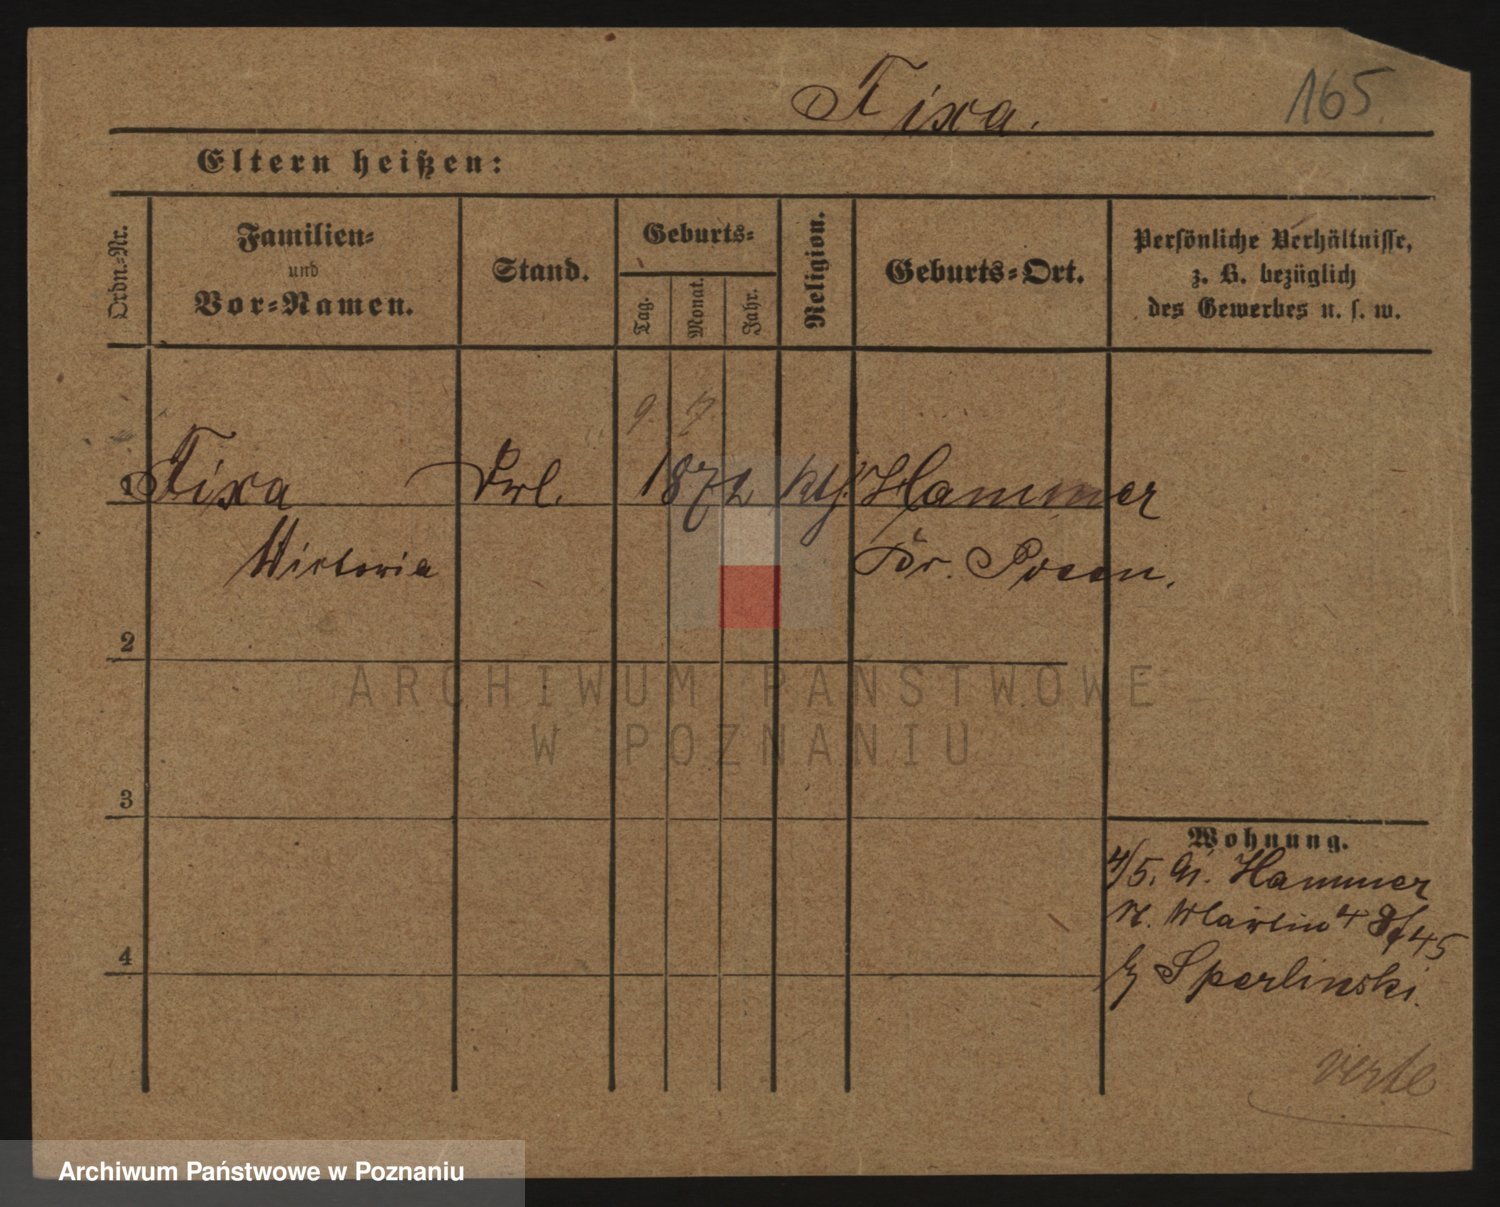 Fixa.
165.
Eltern heißen:
Ordn.-Nr.
Familien-
und
Vor-Namen.
Stand.
Geburts-
Tag.
Monat.
Jahr.
Religion.
Geburts-Ort.
Persönliche Verhältnisse,
z. B. bezüglich
des Gewerbes u. s. w.
9. 7.
1 Fixa 1872 kth. Hammer
Wictoria Kr. Posen.
2
3
4
ARCHIWUM PAŃSTWOWE
W POZNANIU
Wohnung.
4/5. 91. Hammer
St. Martin 4 45
Sperlinski.
verte
Archiwum Państwowe w Poznaniu